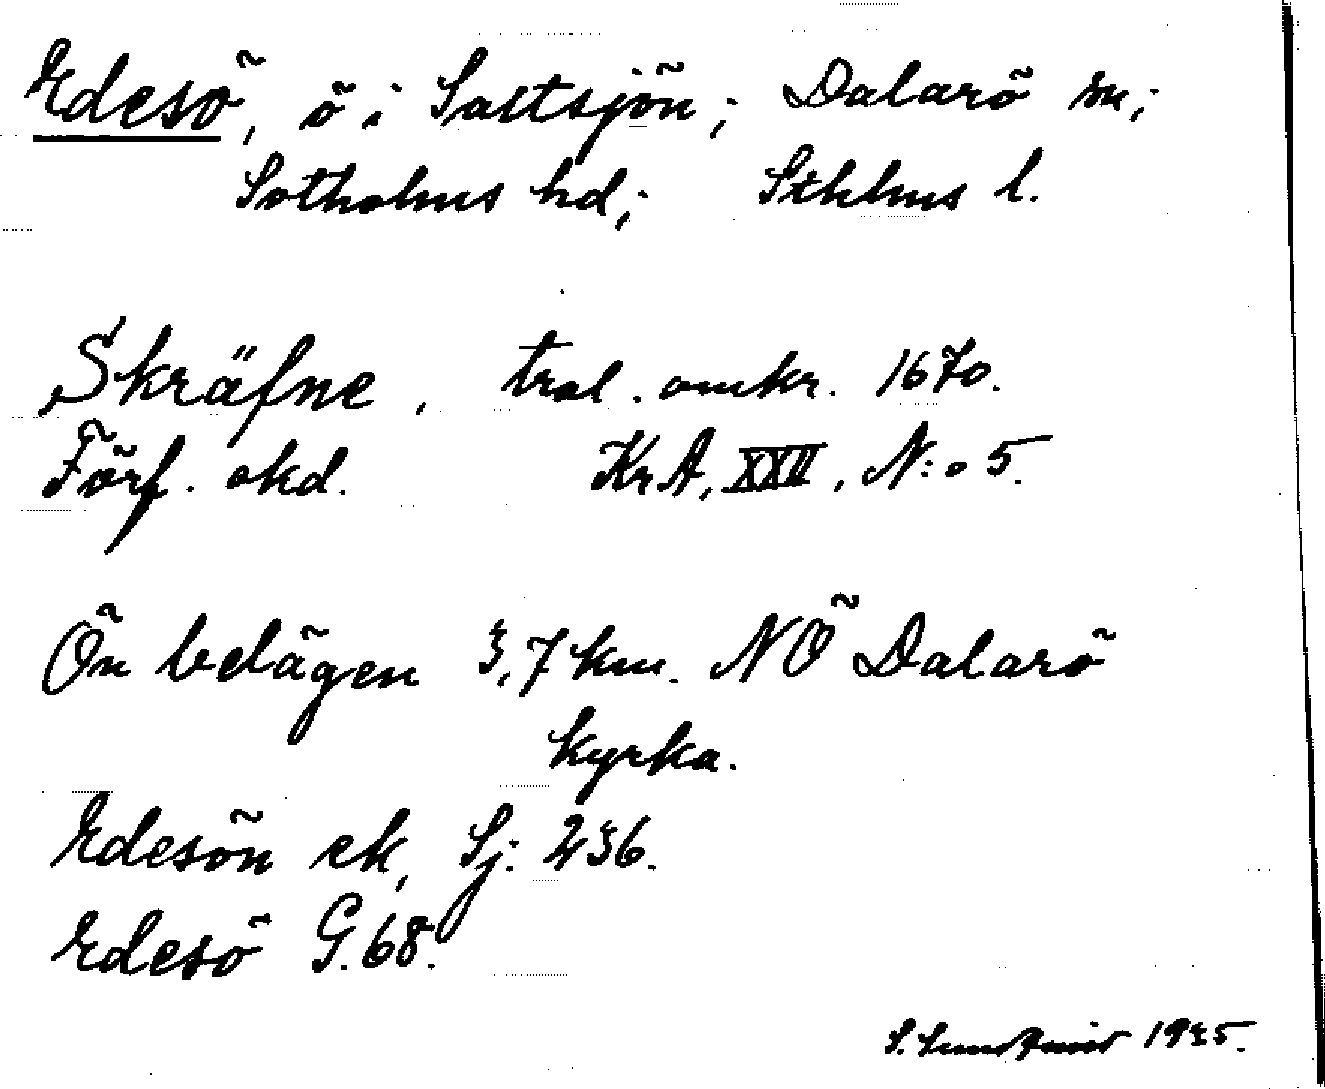 Edesö, ö i Saltsjön; Dalarö sn;
Sotholms hd; Sthlms l.
Skräfne, tral. omkr. 1670.
Förf. okd. KrA, XXII, N:o 5.
Ön belägen 3,7 km. NÖ Dalarö
kyrka.
Edesön ek, Sj: 236.
Edesö G. 68.
S. 1935.